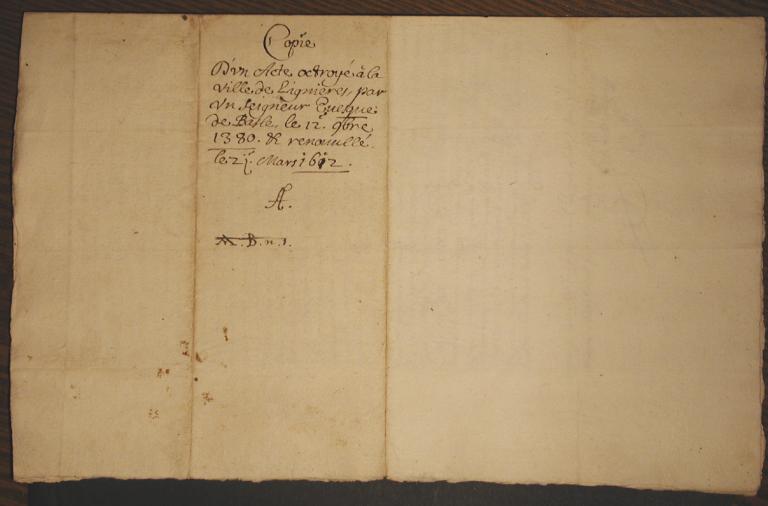 Copie
D'vn Acte octroyé à la
Ville de Lignieres, par
vn Seigneur Euesque
de Basle, le 12.e 9bre
1380. & renouuellé
le 21. Mars 1612.
A.
B. n. 1.